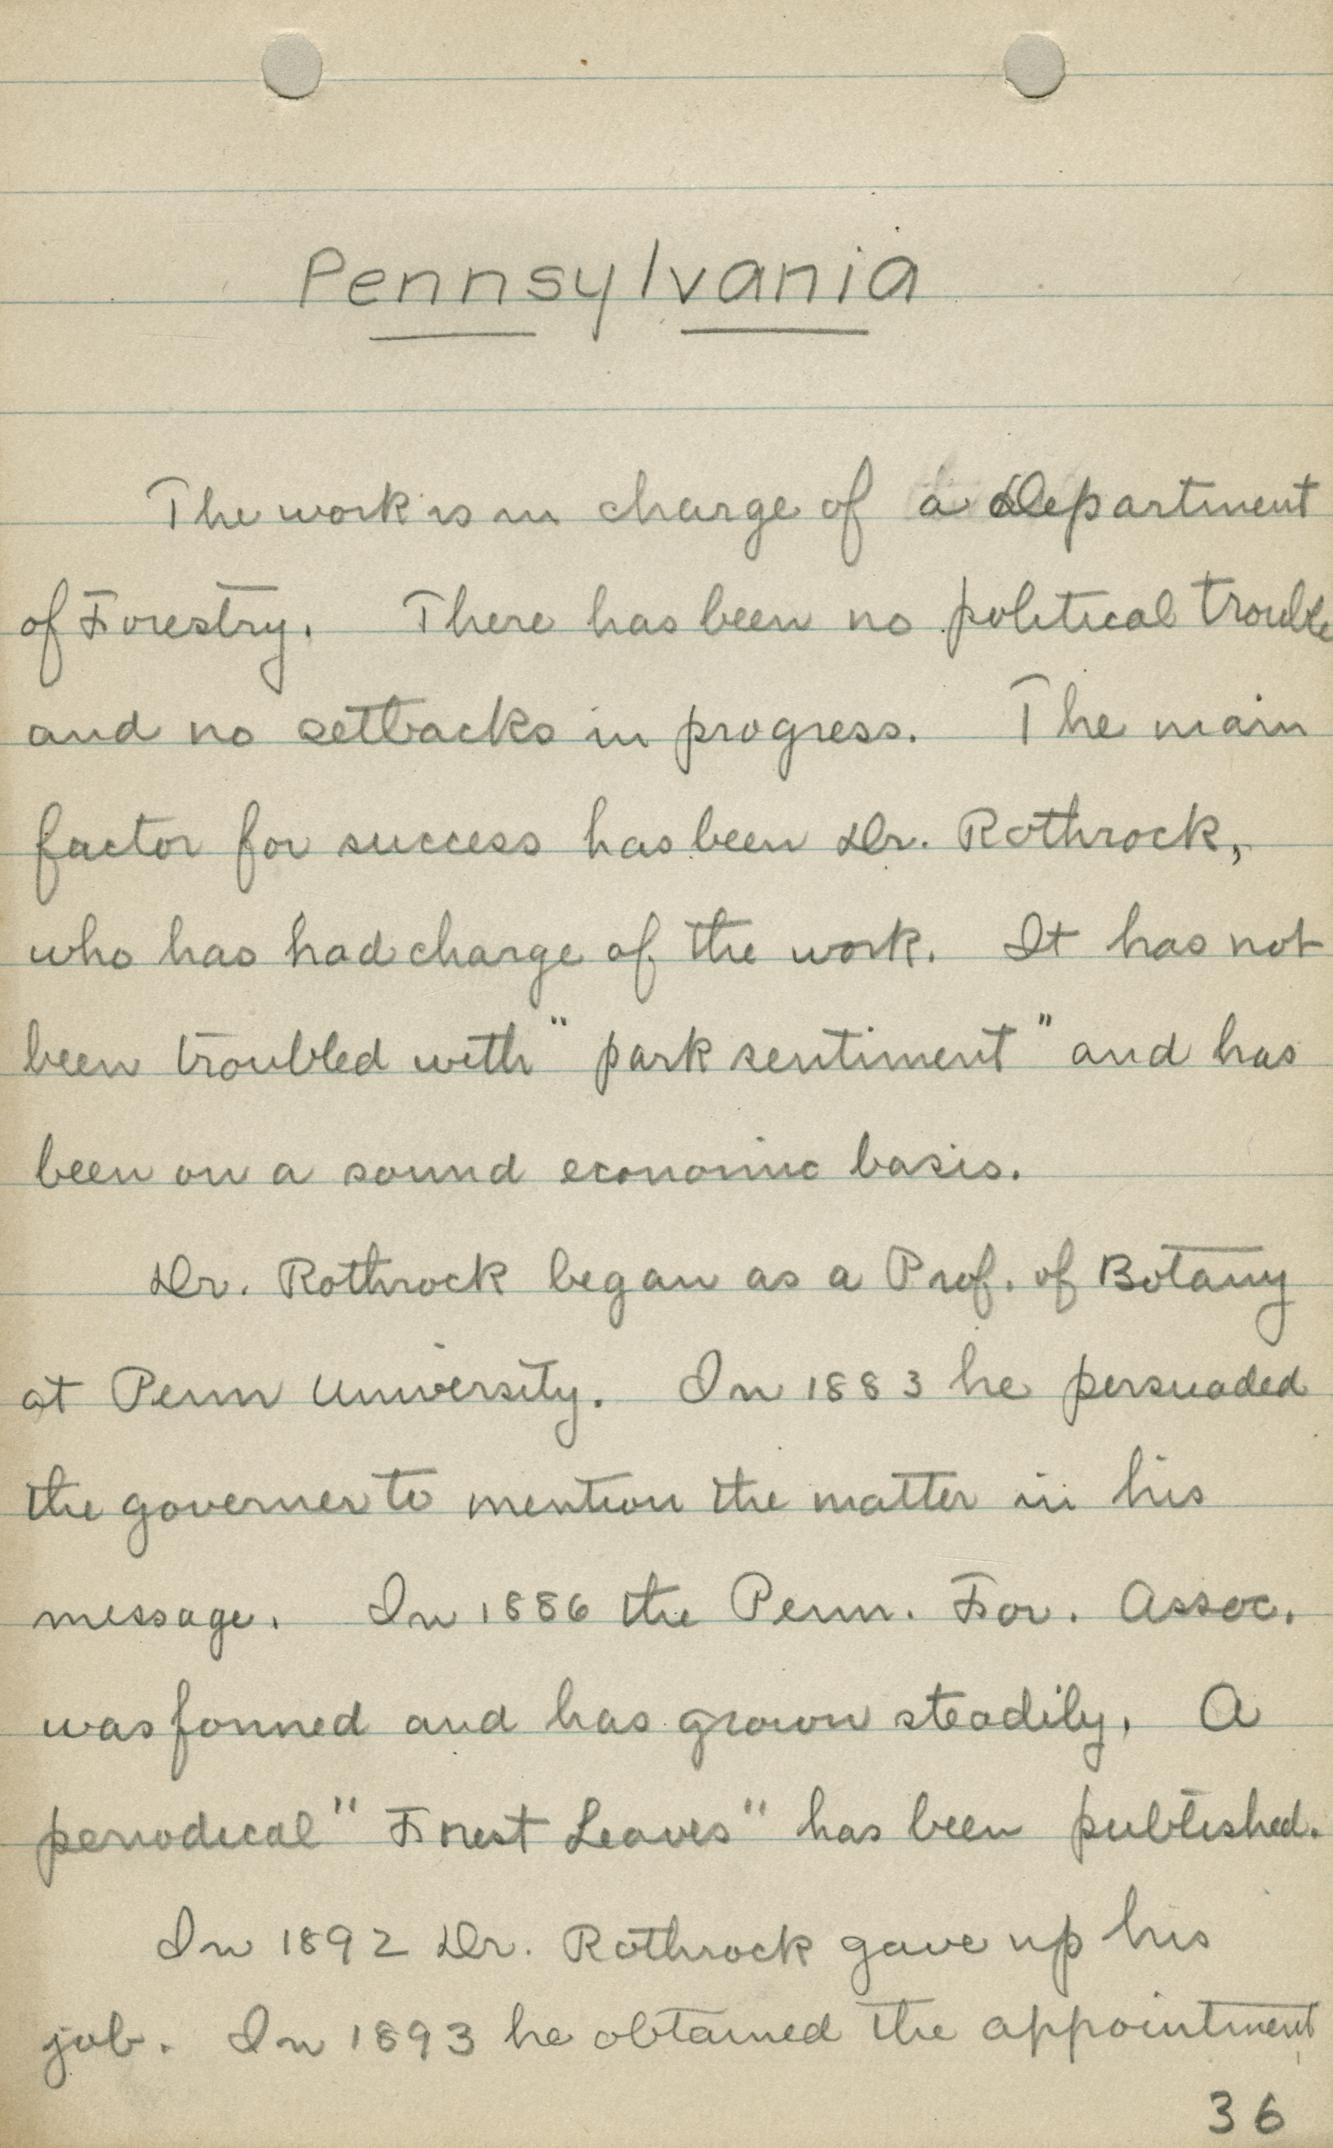 Pennsylvania
The work is in charge of a Department
of Forestry. There has been no political trouble
and no setbacks in progress. The main
factor for success has been Dr. Rothrock,
who has had charge of the work. It has not
been troubled with "park sentiment" and has
been on a sound economic basis.
Dr. Rothrock began as a Prof. of Botany
at Penn University. In 1883 he persuaded
the governer to mention the matter in his
message. In 1886 the Penn. For. Assoc.
was formed and has grown steadily. A
periodical "Forest Leaves" has been published.
In 1892 Dr. Rothrock gave up his
job. In 1893 he obtained the appointment
36